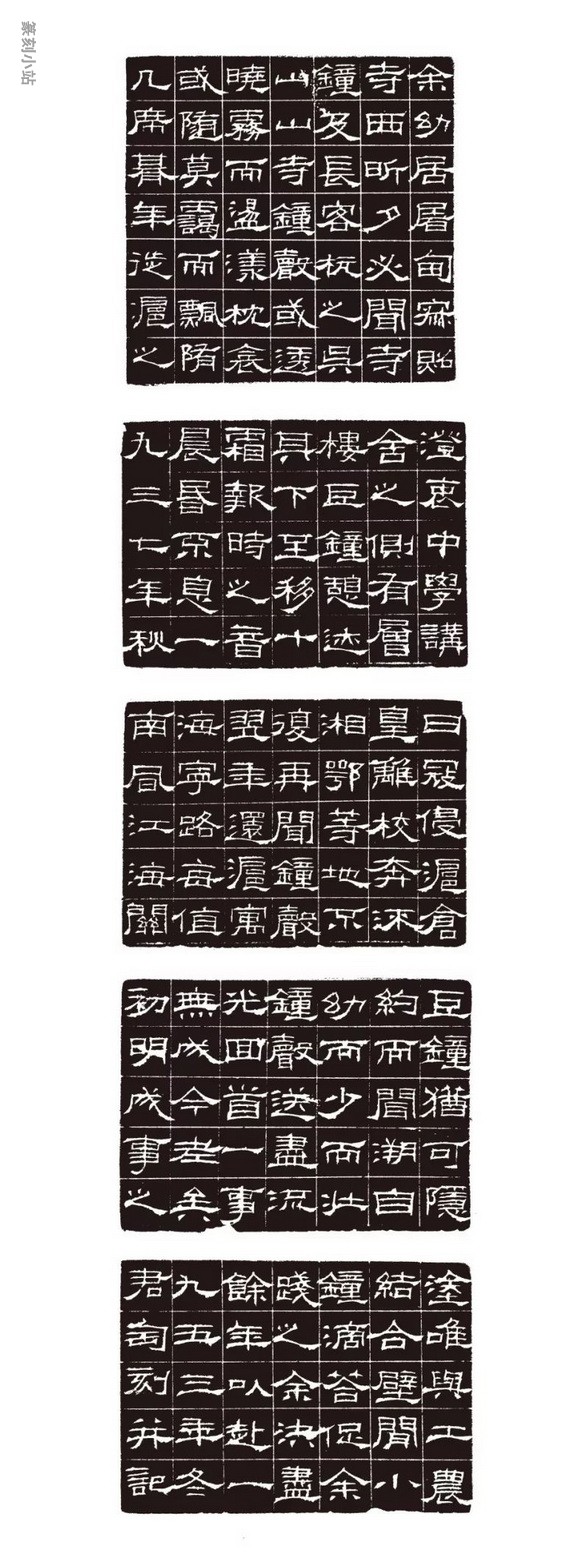 篆刻小站
余幼居屠甸寂照
寺西昕夕必聞寺
鐘及長客杭之吳
山山寺鐘聲或透
曉霧而盪漾枕衾
或隨莫靄而飄陏
几席朞年徙滬之
澄衷中學講
舍之側有層
樓巨鐘憩迹
其下至移十
霜報時之音
晨昏不息一
九三七年秋
日寇侵滬倉
皇離校奔
湘鄂等地不
復再聞鐘聲
翌年還滬寓
海寧路每值
南風江海關
巨鐘猶可隱
約而聞溯自
幼而少而壯
鐘聲送盡流
光回首一事
無成今老矣
初明成事之
塗唯與工農
結合壁間小
鐘滴答促余
踐之余決盡
餘年以赴一
九五三年冬
君匋刻并記